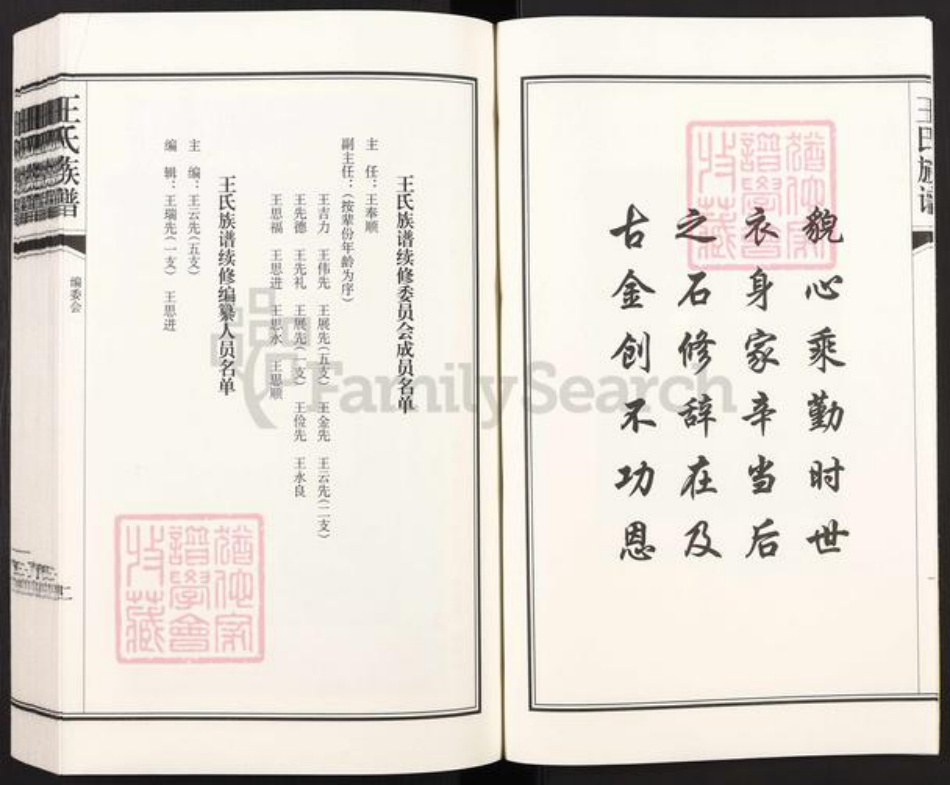 王氏族谱
貌心乘勤时世
衣身家辛当后
之石修辞在及
古金创不功恩
犹他家
谱學會
收藏
王氏族谱续修委员会成员名单
主　任：王奉顺
副主任：（按辈份年龄为序）
王吉力　王伟先　王展先（五支）　王金先　王云先（二支）
王先德　王先礼　王展先（一支）　王俭先　王水良
王思福　王思进　王思水　王思顺
王氏族谱续修编纂人员名单
主　编：王云先（五支）
编　辑：王瑞先（一支）　王思进
猶他家
譜學會
收藏
王氏族谱
编委会
FamilySearch